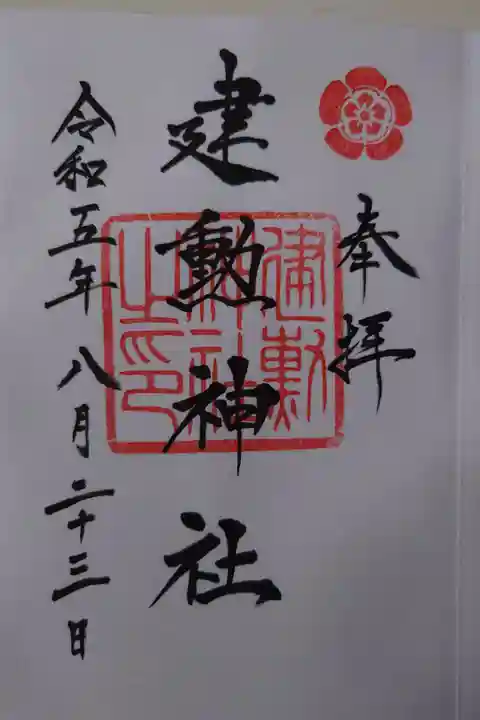 奉拝
建勲神社
建勲神社之印
令和五年八月二十三日